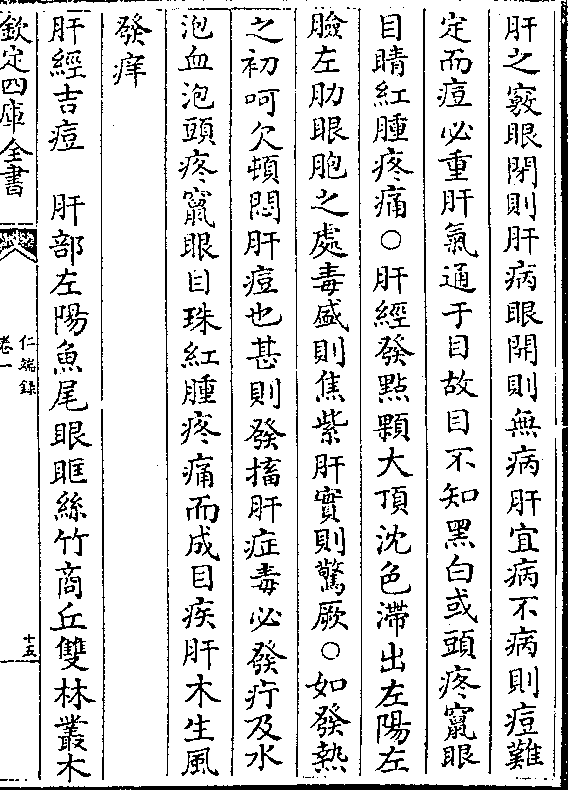 肝之竅眼閉則肝病眼開則無病肝宜病不病則痘難
定而痘必重肝氣通于目故目不知黑白或頭疼竄眼
目睛紅腫疼痛○肝經發點顆大頂沈色滯出左陽左
臉左肋眼胞之處毒盛則焦紫肝實則驚厥○如發熱
之初呵欠頓悶肝痘也甚則發搐肝症毒必發疔及水
泡血泡頭疼竄眼目珠紅腫疼痛而成目疾肝木生風
發痒
肝經吉痘　肝部左陽魚尾眼眶絲竹商丘雙林叢木
欽定四庫全書
仁端錄
卷一
十五